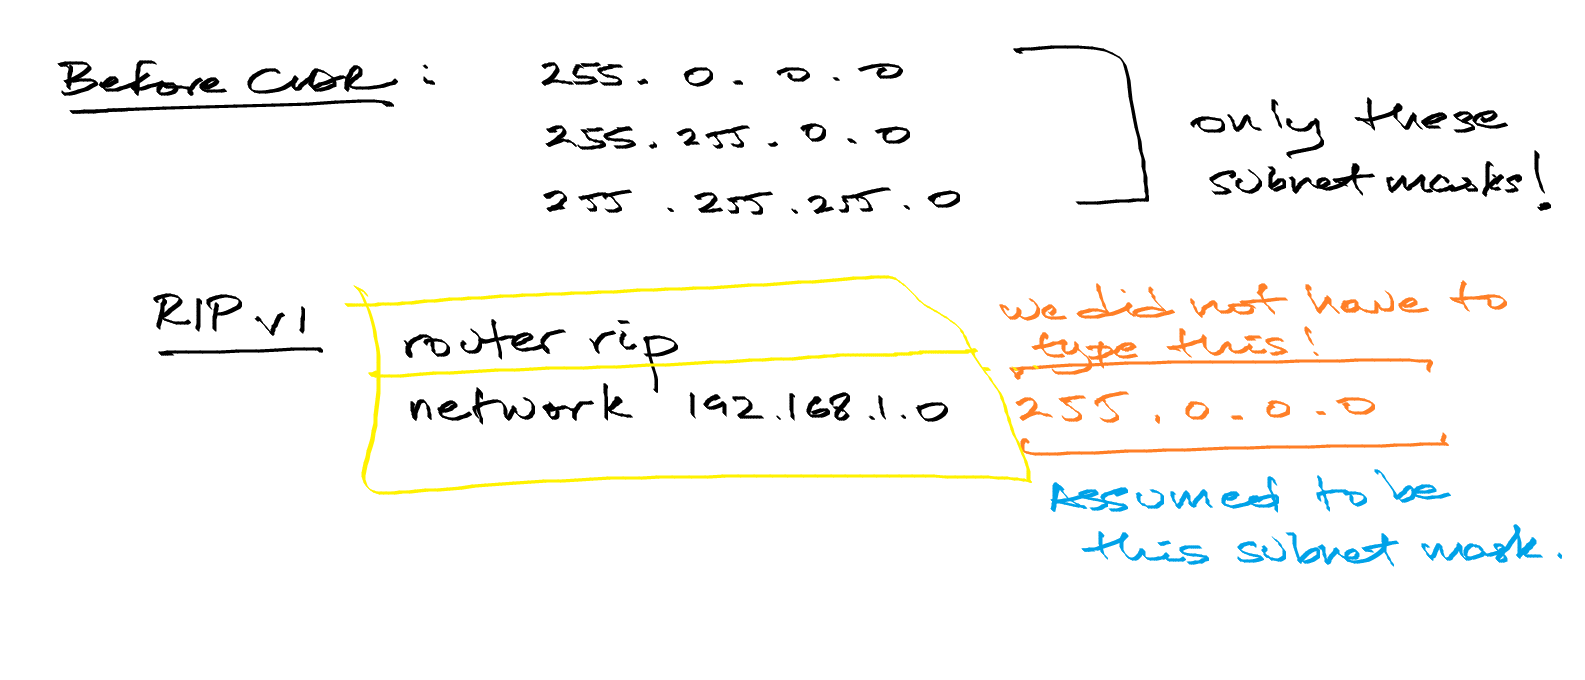 Before CIDR : 255. 0. 0. 0
255. 255. 0. 0
255. 255. 255. 0
only these
subnet masks!
RIP v1
router rip
network 192.168.1.0
we did not have to
type this!
255. 0. 0. 0
Assumed to be
this subnet mask.